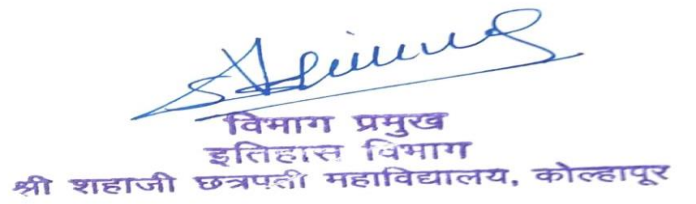 विभाग प्रमुख
इतिहास विभाग
श्री शहाजी छत्रपती महाविद्यालय, कोल्हापूर